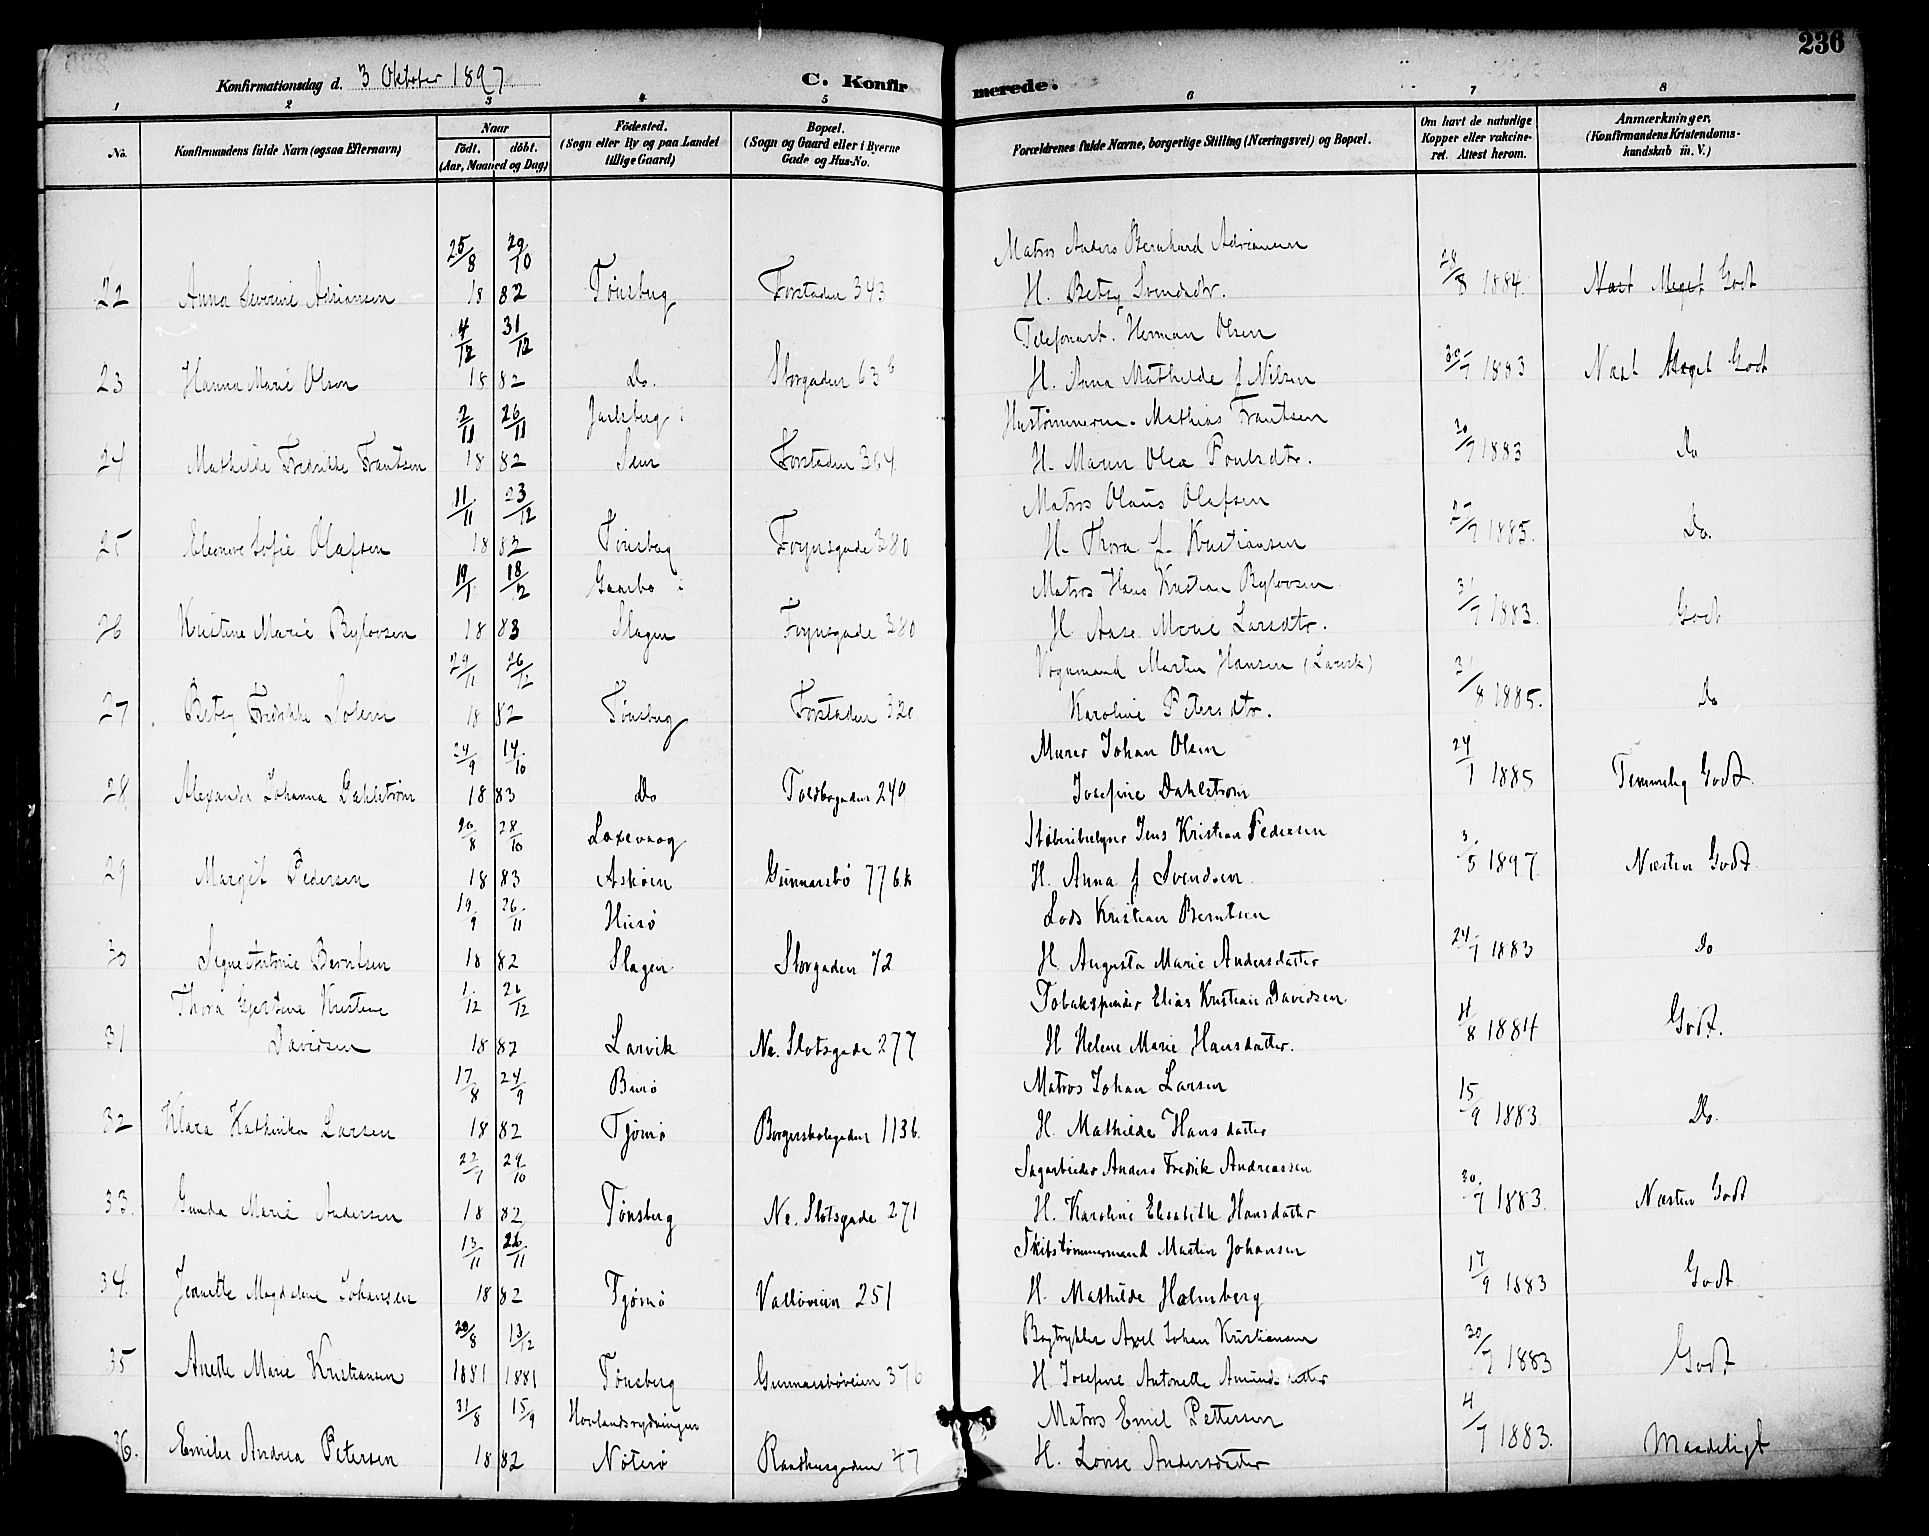 236
Konfirmationsdag d. 3 Oktober 1897
C. Konfirmerede.
1 2 3 4 5 6 7 8
No.
Konfirmandens fulde Navn (ogsaa Efternavn)
Naar
født. døbt.
(Aar, Maaned og Dag)
Fødested.
(Sogn eller By og paa Landet
tillige Gaard)
Bopæl.
(Sogn og Gaard eller i Byerne
Gade og Hus-No.
Forældrenes fulde Navne, borgerlige Stilling (Næringsvei) og Bopæl.
Om havt de naturlige
Kopper eller vakcine-
ret. Attest herom.
Anmærkninger,
(Konfirmandens Kristendoms-
kundskab m. V.)
25/8 29/10 Matros Anders Bernhard Adriansen
22 Anna Severine Adriansen 18 82 Tønsberg Forstaden 343 H. Betsy Svendsdtr. 28/8 1884. Næst Meget Godt
4/12 31/12 Telefonart. Herman Olsen
23 Hanna Marie Olsen 18 82 Do. Storgaden 63 b H. Anna Mathilde f Nilsen 30/7 1883 Næst Meget Godt
2/11 26/11 Jarlsberg i Hustømmerm. Mathias Frantsen
24 Mathilde Fredrikke Frantsen 18 82 Sem Forstaden 304 H. Maren Olea Poulsdtr. 30/7 1883 Do
11/11 23/12 Matros Olaus Olafsen
25 Eleonore Sofie Olafsen 18 82 Tønsberg Foynsgade 380 H. Thora f. Kristiansen /7 1885. Do.
19/1 18/2 Gaarbo i Matros Hans Kristian Byloosen
26 Kristine Marie Byloosen 18 83 Slagen Foynsgade 380 H. Aase Marie Larsdtr. 31/7 1883. Godt
29/11 26/12 Vognmand Martin Hansen (Larvik)
27 Betsy Fredrikke Solem 18 82 Tønsberg Forstaden 320 Karoline Petersdtr. 31/8 1885. Do
24/9 14/10 Murer Johan Olsen
28 Alexandra Johanna Dahlstrøm 18 83 Do Toldbogaden 240 Josefine Dahlstrøm 24/1 1885 Temmelig Godt
20/8 28/10 Laxevaag Støberibestyrer Jens Kristian Pedersen
29 Margit Pedersen 18 83 Askøen Gunnarsbø 776 k H. Anna f Svendsen 3/5 1897. Næsten Godt.
19/9 26/11 Husø Lods Kristian Berntsen
30 Signe Antonie Berntsen 18 82 Slagen Storgaden 72 H. Augusta Marie Andersdatter 24/7 1883 Do
Thora Gjertine Kristine 1/12 26/12 Tobakspinder Elias Kristian Davidsen
31 Davidsen 18 82 Larvik Ne. Slotsgade 277 H Helene Marie Hansdatter. 4/8 1884 Godt.
17/8 24/9 Burø Matros Johan Larsen
32 Klara Kathinka Larsen 18 82 Tjømø Borgerskolegaden 113 b. H. Mathilde Hansdatter 15/9 1883. Do.
22/7 29/10 Sagarbeider Anders Fredrik Andreassen
33. Gunda Marie Andersen 18 82 Tønsberg Ne. Slotsgade 271 H. Karoline Elisabeth Hansdatter 30/7 1883. Næsten Godt
13/11 26/11 Skibstømmermand Martin Johansen
34. Jeanette Magdalene Johansen 18 82 Tjømø Valløveien 251 H. Mathilde Holmberg 17/9 1883 Godt
20/8 13/12 Bogtrykker Axel Johan Kristiansen
35 Anette Marie Kristiansen 1881 1881 Tønsberg Gunnarsbøveien 376 H. Josefine Antonette Amundsdatter 30/7 1883 Godt
31/8 15/9 Hovlandsrydningen Matros Emil Pettersen
36. Emilie Andrea Petersen 18 82 Nøterø Raadhusgaden 47 H. Lovise Andersdatter 4/7 1883. Maadeligt